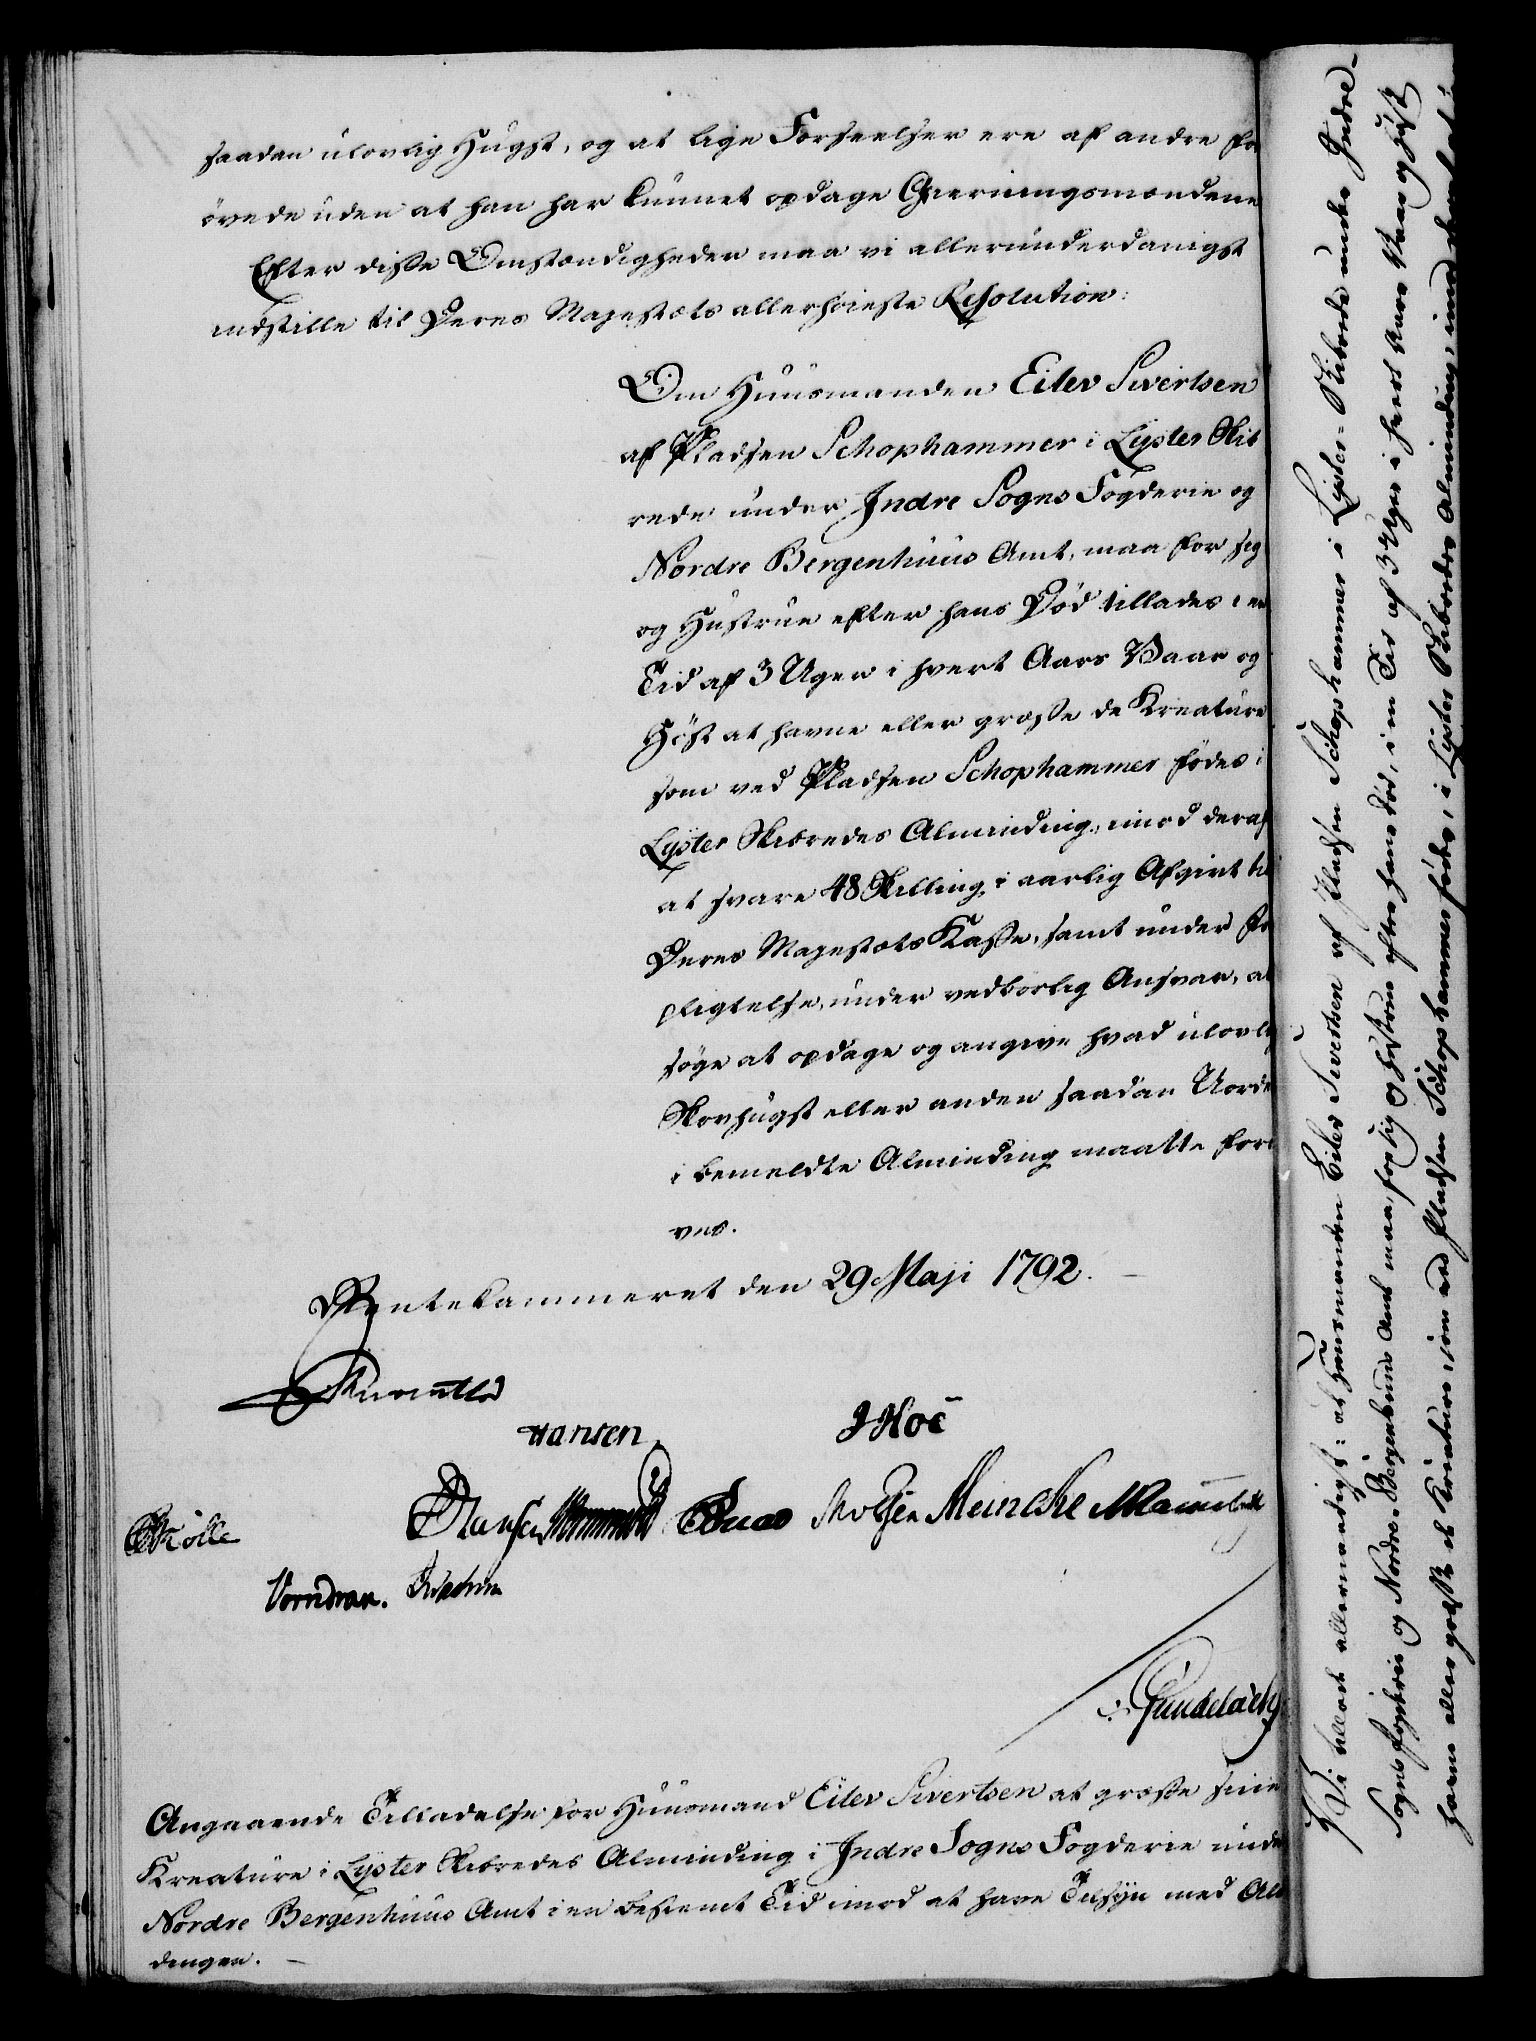 saadan ulovlig Hugst, og at lige Forseelser ere af andre for
övede uden at han har kunnet opdage Gierningsmændene
Efter disse Omstændigheder maa vi allerunderdanigst
indstille til Deres Majestæts allerhöieste Resolution:
Om Huusmanden Eilev Sivertsen
af Pladsen Schophammer i Lyster Skib
rede under Indre Sogns Fogderie og
Nordre Bergenhuus Amt, maa for sig
og Hustrue efter hans Död tillades i en
Tid af 3 Uger i hvert Aars Vaar og
Höst at havne eller græsse de Kreature
som ved Pladsen Schophammer födes i
Lyster Skibredes Alminding, imod deraf
at svare 48 Skilling i aarlig Afgivt til
Deres Majestæts Kasse, samt under For
pligtelse, under vedborlig Ansvar, at
söge at opdage og angive hvad ulovlig
Skovhugst eller anden saadan Uorden
i bemeldte Alminding maatte foröi
ves.
Rentekammeret den 29 Maji 1792.
Hansen JHoë
Meincke
Vorndran.
Angaaende Tilladelse for Huusmand Eilev Sivertsen at græsse sine
Kreature i Lyster Skibredes Alminding i Indre Sogns Fogderie under
Nordre Bergenhuus Amt i en bestemt Tid imod at have Tilsyn med Alm
dingen.
Vi tillade allernaadigst: at Huusmanden Eilev Sivertsen af Pladsen Schophammer i Lyster-Skibrede under Indre-
Sogns Fogderie og Nordre-Bergenhuus Amt maa, for sig og Hustrue efter hans död, i en Tid af 3 Uger i hvert Aars Vaar og Höst
havne eller græsse de Kreature, som ved Pladsen Schophammer födes, i Lyster Skibredes Alminding, imod deraf at